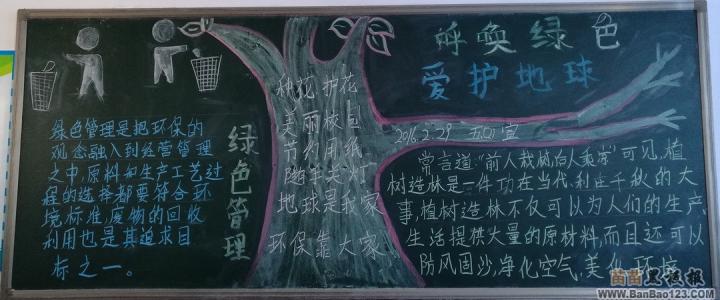 呼唤绿色
爱护地球
绿色管理是把环保的
观念融入到经营管理
之中,原料和生产工艺过
程的选择都要符合环
境标准,废物的回收
利用也是其追求目
标之一。
绿色管理
种花护花
美丽校包
节约用纸
随手关灯
地球是我家
环保靠大家
2016.2.29 五〇1宣
常言道:“前人栽树后人乘凉”可见,植
树造林是一件功在当代,利在千秋的大
事,植树造林不仅可以为人们的生产、
生活提供大量的原材料,而且还可以
防风固沙,净化空气,美化环境
苗苗黑板报
www.BanBao123.com